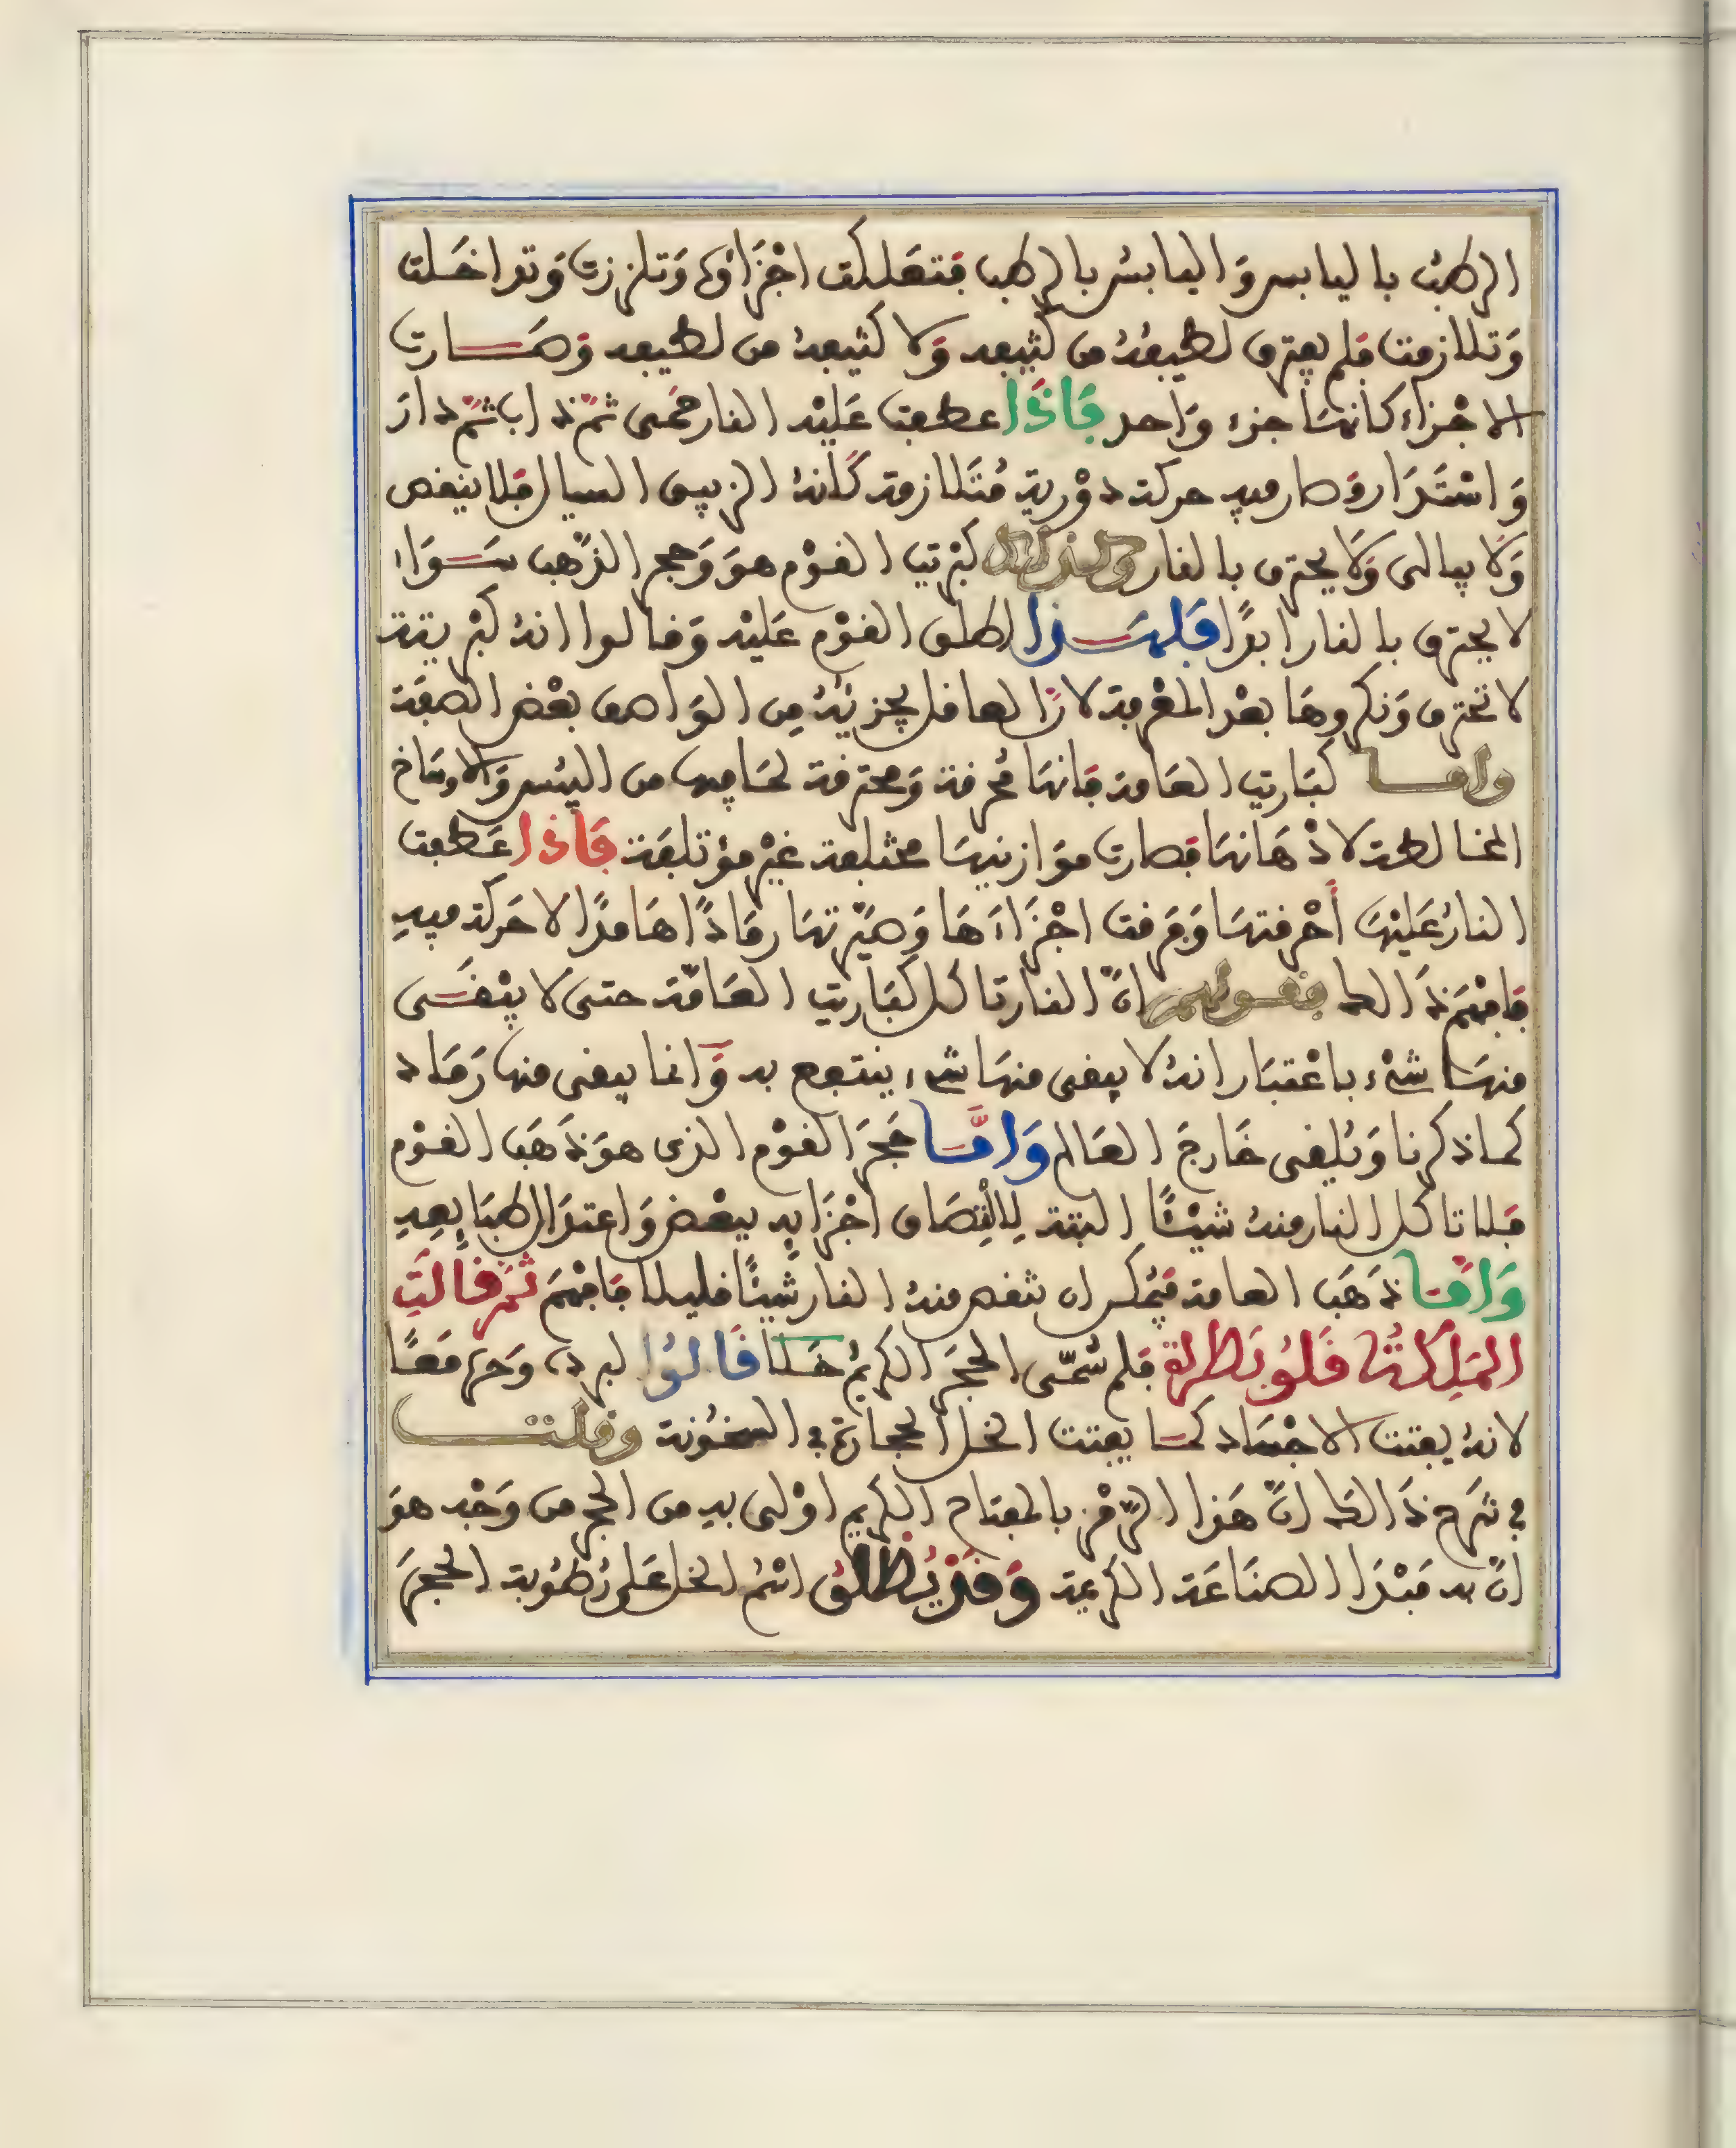 الرطب باليابس وَاليابسُ بالرطب فتعلكت اجْزاؤه وَتلززت وَتداخَلت
وَتلازمت فلم يفترق لطيفُهُ من كثيفه وَلا كثيفهُ من لطيفه وَصَارت
الاجْزاء كانهَا جزء وَاحد فَاذَا عطفت عَليْه النار حَمى ثمّ ذاب ثمّ دارَ
وَاسْتَدَار وَصار فيه حركة دوْرية مُتَلازمة كَانهُ الزيبق السيال فلا ينقص
وَلا يبالى وَلا يحترق بالنار وكذلك كبْريت القوْم هوَ وَحجر الذّهب سَوَاء
لا يحترق بالنار ابدًا فلهَذا اطلق القوْم عَليْه وَقالوا انهُ كبْريتة
لا تحترق وَنكروهَا بعْد المعْرفة لانّ العاقل يجزيهُ مِن الوَاصف بعْض الصفة
وامَا كبَاريت العَامة فانهَا مُحرقة وَمحترقة لمَا فيها من اليبْس وَالاوسَاخ
المخالطة لادْهَانهَا فصارت موَازينهَا مختلفة غيْر مؤتلفَة فَاذا عَطفت
النارُ عَليْهَا أحْرقتهَا وَفرقت اجْزَاءَهَا وَصيّرتهَا رمَادًا هَامدًا لا حَركة فيهِ
فافهَم ذَالك فقولهم انّ النار تاكل كبَاريت العَامّة حتى لا يبْقَى
منهَا شىْء باعْتبَار انهُ لا يبقى منهَا شىء ينتفع به وَانما يبقى منها رَمَاد
كما ذكرنا وَيُلقى خَارجَ العَالم وَامَّا حَجرَ القوْم الذى هوَ ذَهَب القوْم
فلا تاكل النار منهُ شيْئًا البتة لِالْتِصَاق اجْزَايِه ببعْض وَاعتدَال طبَايعِهِ
وَامَّا ذهَب العامة فيُمكن ان تنقص منهُ النار شيئًا قليلا فافهَم ثم قالتِ
المَلِكَةُ قَلُوبَطرة فلم سُمّى الحجَر الكريْم خَلا قَالوُا لبرده وَحره مَعًا
لانهُ يفتت الاجْسَاد كمَا يفتت الخل الحجارة فى السخُونة وقلت
فى شرح ذَالك انّ هَذا الرّمْز بالمفتاح الكريم اوْلى به من الحجر من وَجْه هوَ
انّ به مَبْدَا الصنَاعَة الكريمة وَقدْ يُطلَقُ اسْمُ الخل عَلى رُطوُبة الحجرَ